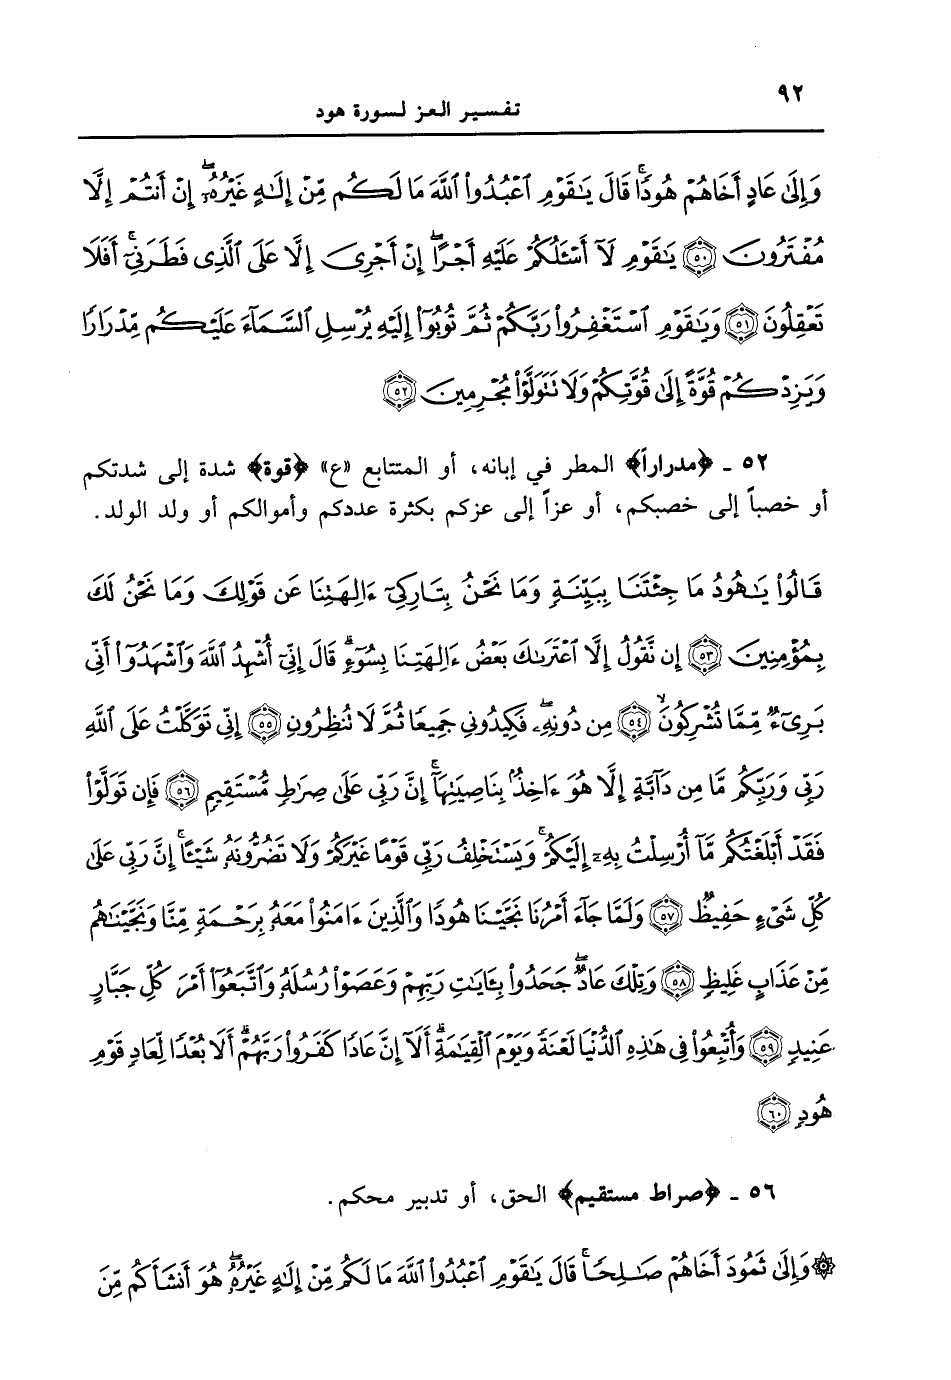 ٩٢
تفسير العز لسورة هود
وَإِلَىٰ عَادٍ أَخَاهُمْ هُودًاۚ قَالَ يَٰقَوْمِ ٱعْبُدُوا۟ ٱللَّهَ مَا لَكُم مِّنْ إِلَٰهٍ غَيْرُهُۥٓۖ إِنْ أَنتُمْ إِلَّا
مُفْتَرُونَ ۝٥٠ يَٰقَوْمِ لَآ أَسْـَٔلُكُمْ عَلَيْهِ أَجْرًاۖ إِنْ أَجْرِىَ إِلَّا عَلَى ٱلَّذِى فَطَرَنِىٓۚ أَفَلَا
تَعْقِلُونَ ۝٥١ وَيَٰقَوْمِ ٱسْتَغْفِرُوا۟ رَبَّكُمْ ثُمَّ تُوبُوٓا۟ إِلَيْهِ يُرْسِلِ ٱلسَّمَآءَ عَلَيْكُم مِّدْرَارًا
وَيَزِدْكُمْ قُوَّةً إِلَىٰ قُوَّتِكُمْ وَلَا تَتَوَلَّوْا۟ مُجْرِمِينَ ۝٥٢
٥٢ ـ ﴿مدراراً﴾ المطر في إبانه، أو المتتابع «ع» ﴿قوة﴾ شدة إلى شدتكم
أو خصباً إلى خصبكم، أو عزاً إلى عزكم بكثرة عددكم وأموالكم أو ولد الولد.
قَالُوا۟ يَٰهُودُ مَا جِئْتَنَا بِبَيِّنَةٍ وَمَا نَحْنُ بِتَارِكِىٓ ءَالِهَتِنَا عَن قَوْلِكَ وَمَا نَحْنُ لَكَ
بِمُؤْمِنِينَ ۝٥٣ إِن نَّقُولُ إِلَّا ٱعْتَرَىٰكَ بَعْضُ ءَالِهَتِنَا بِسُوٓءٍۗ قَالَ إِنِّىٓ أُشْهِدُ ٱللَّهَ وَٱشْهَدُوٓا۟ أَنِّى
بَرِىٓءٌ مِّمَّا تُشْرِكُونَۙ ۝٥٤ مِن دُونِهِۦۖ فَكِيدُونِى جَمِيعًا ثُمَّ لَا تُنظِرُونِ ۝٥٥ إِنِّى تَوَكَّلْتُ عَلَى ٱللَّهِ
رَبِّى وَرَبِّكُم مَّا مِن دَآبَّةٍ إِلَّا هُوَ ءَاخِذٌۢ بِنَاصِيَتِهَآۚ إِنَّ رَبِّى عَلَىٰ صِرَٰطٍ مُّسْتَقِيمٍ ۝٥٦ فَإِن تَوَلَّوْا۟
فَقَدْ أَبْلَغْتُكُم مَّآ أُرْسِلْتُ بِهِۦٓ إِلَيْكُمْۚ وَيَسْتَخْلِفُ رَبِّى قَوْمًا غَيْرَكُمْ وَلَا تَضُرُّونَهُۥ شَيْـًٔاۚ إِنَّ رَبِّى عَلَىٰ
كُلِّ شَىْءٍ حَفِيظٌ ۝٥٧ وَلَمَّا جَآءَ أَمْرُنَا نَجَّيْنَا هُودًا وَٱلَّذِينَ ءَامَنُوا۟ مَعَهُۥ بِرَحْمَةٍ مِّنَّا وَنَجَّيْنَٰهُم
مِّنْ عَذَابٍ غَلِيظٍ ۝٥٨ وَتِلْكَ عَادٌۖ جَحَدُوا۟ بِـَٔايَٰتِ رَبِّهِمْ وَعَصَوْا۟ رُسُلَهُۥ وَٱتَّبَعُوٓا۟ أَمْرَ كُلِّ جَبَّارٍ
عَنِيدٍ ۝٥٩ وَأُتْبِعُوا۟ فِى هَٰذِهِ ٱلدُّنْيَا لَعْنَةً وَيَوْمَ ٱلْقِيَٰمَةِۗ أَلَآ إِنَّ عَادًا كَفَرُوا۟ رَبَّهُمْۗ أَلَا بُعْدًا لِّعَادٍ قَوْمِ
هُودٍ ۝٦٠
٥٦ ـ ﴿صراط مستقيم﴾ الحق، أو تدبير محكم.
۞ وَإِلَىٰ ثَمُودَ أَخَاهُمْ صَٰلِحًاۚ قَالَ يَٰقَوْمِ ٱعْبُدُوا۟ ٱللَّهَ مَا لَكُم مِّنْ إِلَٰهٍ غَيْرُهُۥۖ هُوَ أَنشَأَكُم مِّنَ